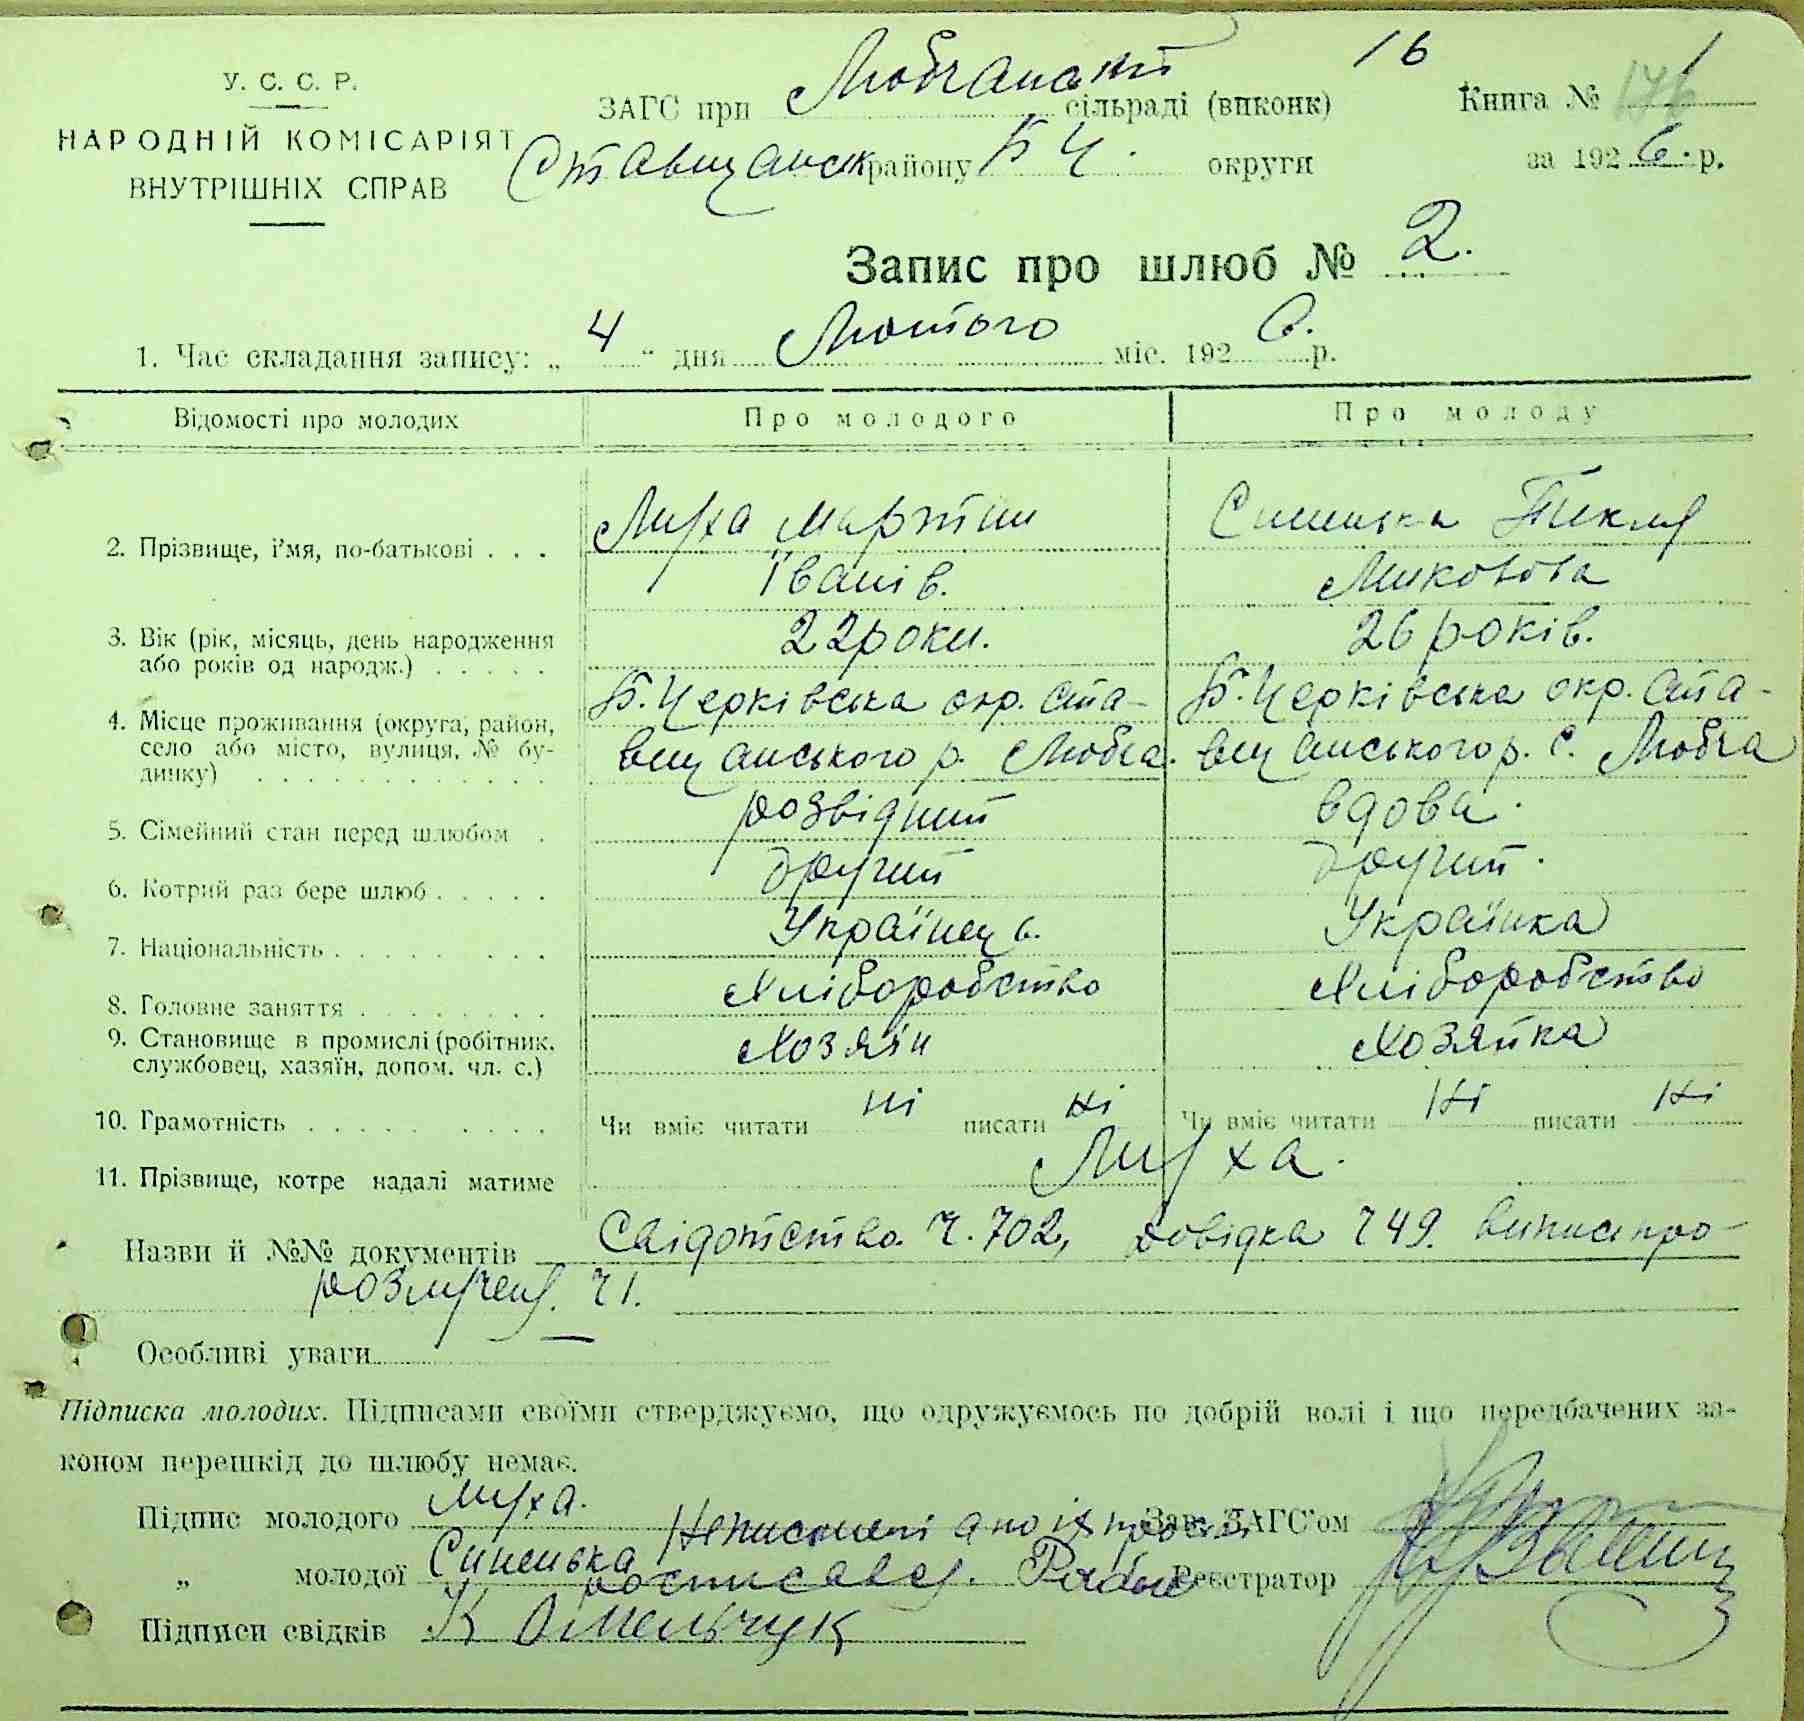 У. С. С. Р.
НАРОДНІЙ КОМІСАРІЯТ
ВНУТРІШНІХ СПРАВ
16 1
ЗАГС при Любчанській сільраді (виконк) Книга №
Ставищанськ району БЧ. округи за 1926. р.
Запис про шлюб № 2.
1. Час складання запису: „ 4 " дня Лютого міс. 1926. р.
Відомості про молодих Про молодого Про молоду
2. Прізвище, і'мя, по-батькові . . . Муха Мартин Синенька Текля
Іванів. Миковова
3. Вік (рік, місяць, день народження 22 роки. 26 років.
або років од народж.) . . . . .
4. Місце проживання (округа, район, Б. Церківська окр. Ста- Б. Церківська окр. Ста-
село або місто, вулиця, № бу- вищанського р. Любча. вищанського р. с. Любча
динку) . . . . . . . . . . . .
5. Сімейний стан перед шлюбом . розвідний вдова.
6. Котрий раз бере шлюб . . . . . другий другий.
7. Національність . . . . . . . . Українець. Українка
8. Головне заняття . . . . . . . . Хліборобство Хліборобство
9. Становище в промислі (робітник, Хозяїн Хозяйка
службовец, хазяїн, допом. чл. с.)
10. Грамотність . . . . . . . . . Чи вміє читати ні писати ні Чи вміє читати Ні писати Ні
11. Прізвище, котре надалі матиме Муха.
Назви й №№ документів Свідотство Ч. 702, довідка Ч 49. виписи про
розлучен. Ч 1.
Особливі уваги —
Підписка молодих. Підписами своїми стверджуємо, що одружуємось по добрій волі і що передбачених за-
коном перешкід до шлюбу немає.
Підпис молодого Муха. Неписьмені а по їх прозьбі Зав. ЗАГС'ом
„ молодої Синенька росписався. Реєстратор
Підписи свідків К Омельчук